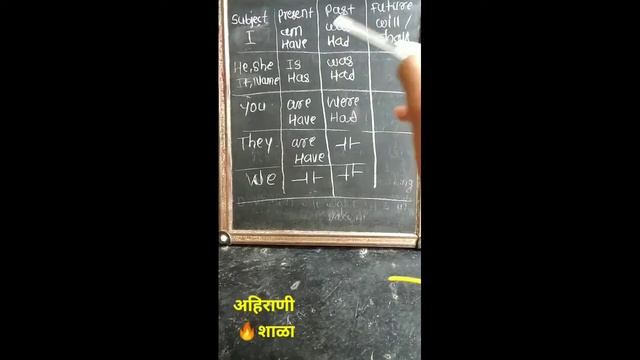 Subject Present Past Future
I am was will/
Have Had
He, She Is was
It, Name Has Had
You are Were
Have Had
They are ⊣⊢
Have
We ⊣⊢ ⊣⊢
अहिराणी
🔥शाळा